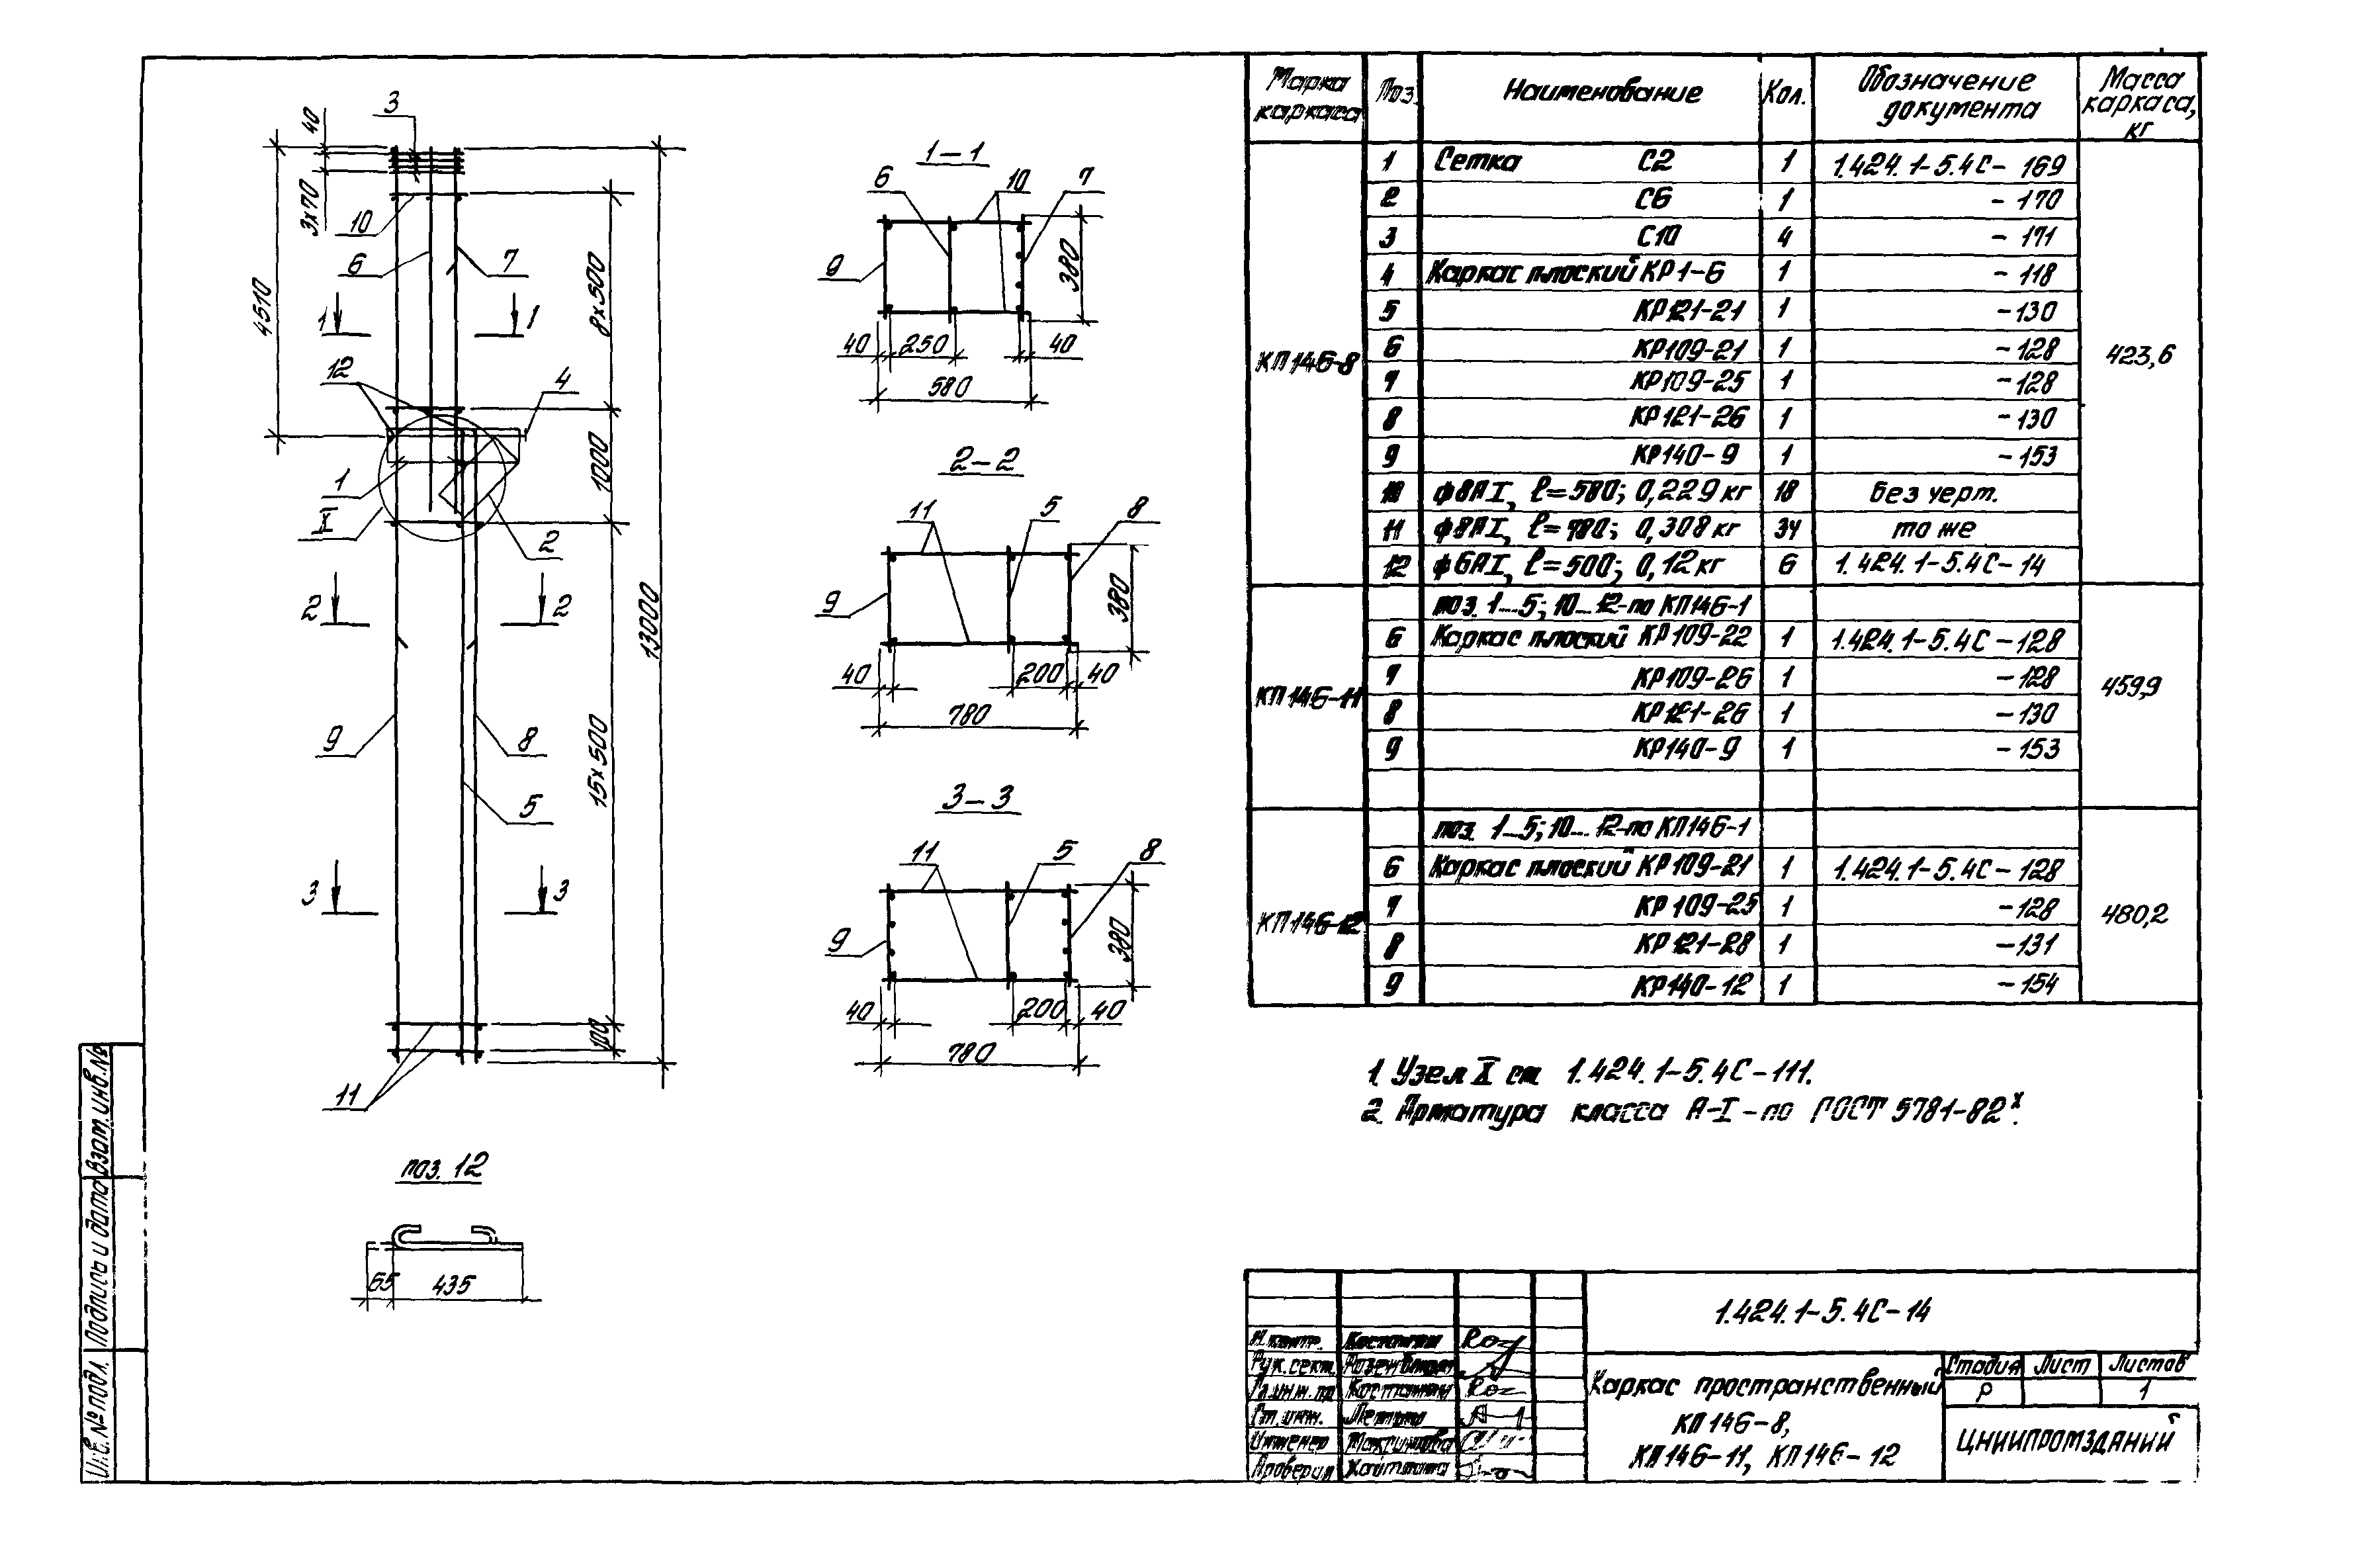 3
40
3х70
10
6
7
4510
8х500
1
1
12
4
1000
1
X
2
2
2
13000
9
8
15х500
5
3
3
100
11
поз. 12
65
435
1-1
6
10
7
9
380
40
250
40
580
2-2
11
5
8
9
380
40
200
40
780
3-3
11
5
8
9
380
40
200
40
780
Марка каркаса Поз. Наименование Кол. Обозначение документа Масса каркаса, кг
КП146-8 423,6
1 Сетка С2 1 1.424.1-5.4С-169
2 С6 1 -170
3 С10 4 -171
4 Каркас плоский КР1-6 1 -118
5 КР121-21 1 -130
6 КР109-21 1 -128
7 КР109-25 1 -128
8 КР121-26 1 -130
9 КР140-9 1 -153
10 ф8АI, ℓ=580; 0,229 кг 18 без черт.
11 ф8АI, ℓ=780; 0,308 кг 34 то же
12 ф6АI, ℓ=500; 0,12 кг 6 1.424.1-5.4С-14
КП146-11 459,9
поз. 1...5; 10...12-по КП146-1
6 Каркас плоский КР109-22 1 1.424.1-5.4С-128
7 КР109-26 1 -128
8 КР121-26 1 -130
9 КР140-9 1 -153
КП146-12 480,2
поз. 1...5; 10...12-по КП146-1
6 Каркас плоский КР109-21 1 1.424.1-5.4С-128
7 КР109-25 1 -128
8 КР121-28 1 -131
9 КР140-12 1 -154
1. Узел X см 1.424.1-5.4С-111.
2. Арматура класса А-I-по ГОСТ 5781-82х.
1.424.1-5.4С-14
Н.контр.
Рук.сект.
Гл.инж.пр
Ст.инж.
Инженер
Проверил
Каркас пространственный
КП146-8,
КП146-11, КП146-12
Стадия Лист Листов
Р 1
ЦНИИПРОМЗДАНИЙ
Инв.№подл. Подпись и дата Взам.инв.№